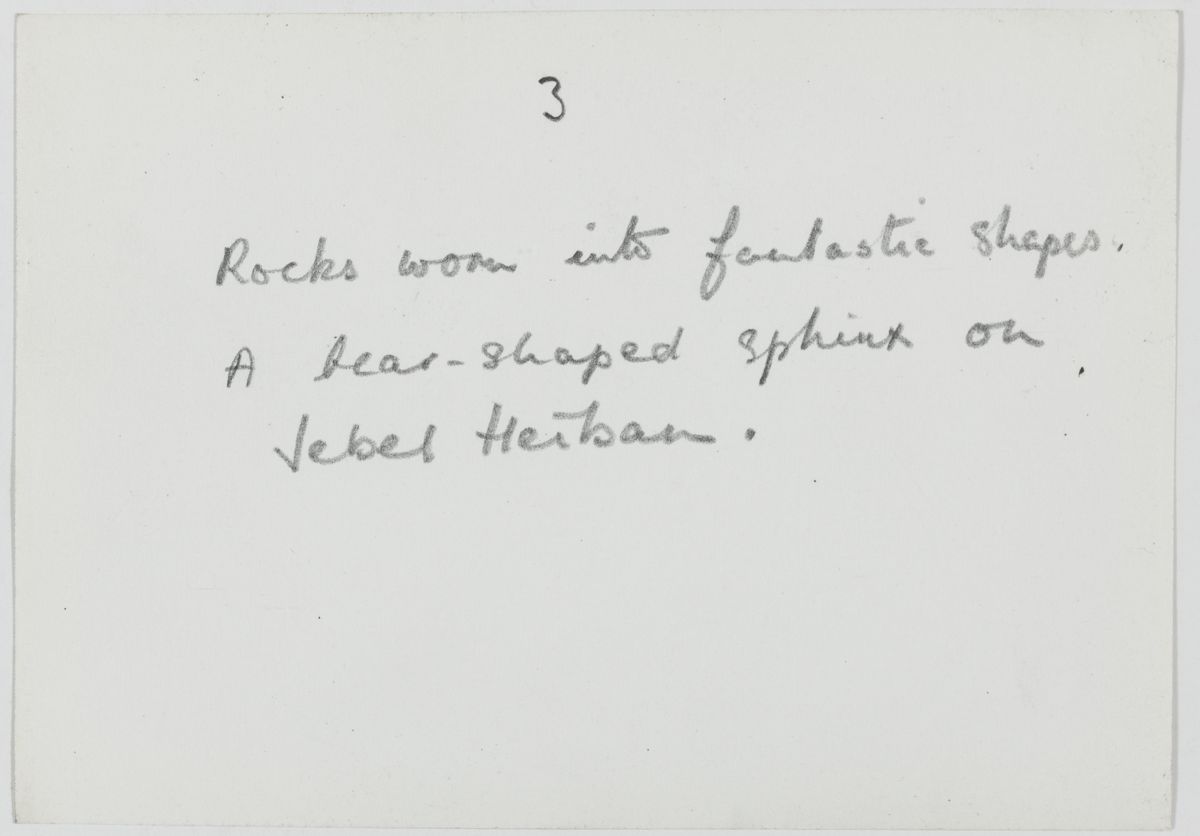 3
Rocks worn into fantastic shapes.
A bear-shaped sphinx on
Jebel Heiban.